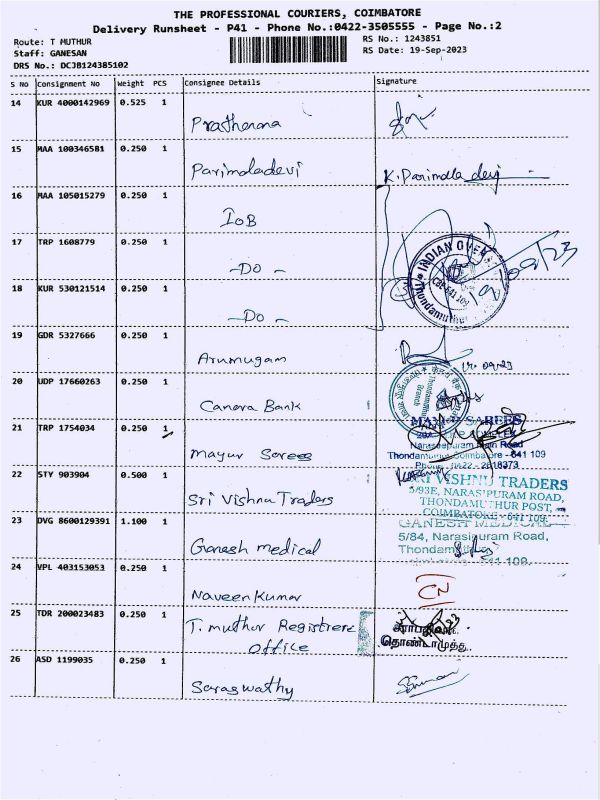 THE PROFESSIONAL COURIERS, COIMBATORE
Delivery Runsheet - P41 - Phone No.:0422-3505555 - Page No.:2
Route: T MUTHUR
Staff: GANESAN
DRS No.: DCJB124385102
RS No.: 1243851
RS Date: 19-Sep-2023
S No Consignment No Weight PCS Consignee Details Signature
14 KUR 4000142969 0.525 1
Prastherona
15 MAA 100346581 0.250 1
Parimaladevi K. Parimalla devi
16 MAA 105015279 0.250 1
IOB
17 TRP 1608779 0.250 1
-Do-
INDIAN OVER
641 109
Thondamuthur
18 KUR 530121514 0.250 1
-Do-
19 GDR 5327666 0.250 1
Arumugam
20 UDP 17660263 0.250 1
Canara Bank
Thondamuthur
Branch
21 TRP 1754034 0.250 1
Mayur Sarees
SAREES
Narasipuram Main Road
Thondamuthur Coimbatore - 641 109
Phone: 0422 - 2618373
22 STY 903904 0.500 1
Sri Vishnu Traders
SRI VISHNU TRADERS
5/93E, NARASIPURAM ROAD,
THONDAMUTHUR POST,
COIMBATORE - 641 109.
23 DVG 8600129391 1.100 1
Ganesh medical
GANESH MEDICAL
5/84, Narasipuram Road,
641 109.
24 VPL 403153053 0.250 1
Naveen Kumar
CN
25 TDR 200023483 0.250 1
T. muthur Registrere
office
தொண்டாமுத்தூர்
26 ASD 1199035 0.250 1
Saraswathy